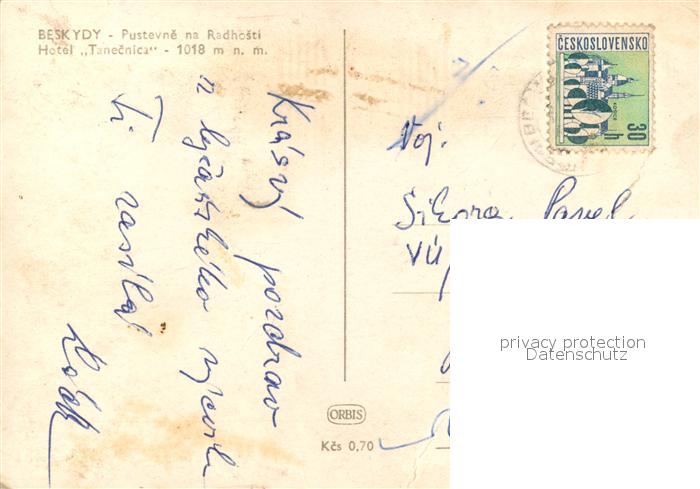 BESKYDY - Pustevně na Radhošti
Hotel „Tanečnica" - 1018 m n. m.
Krásný pozdrav
z lyžařského výcviku
Ti zasílá
ČESKOSLOVENSKO
30
h
Voj.
Sikora Pavel
VÚ
privacy protection
Datenschutz
ORBIS
Kčs 0,70